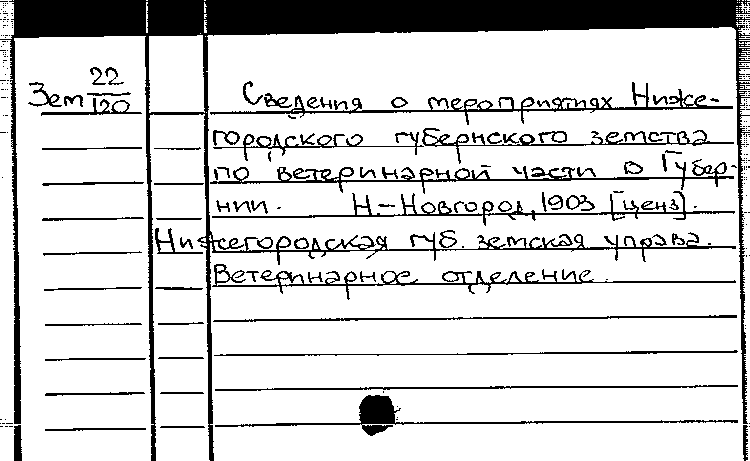 Зем 22/120
Сведения о мероприятиях Ниже-
городского губернского земства
по ветеринарной части в Губер-
нии. Н.-Новгород, 1903 [ценз].
Нижегородская губ. земская управа.
Ветеринарное отделение.